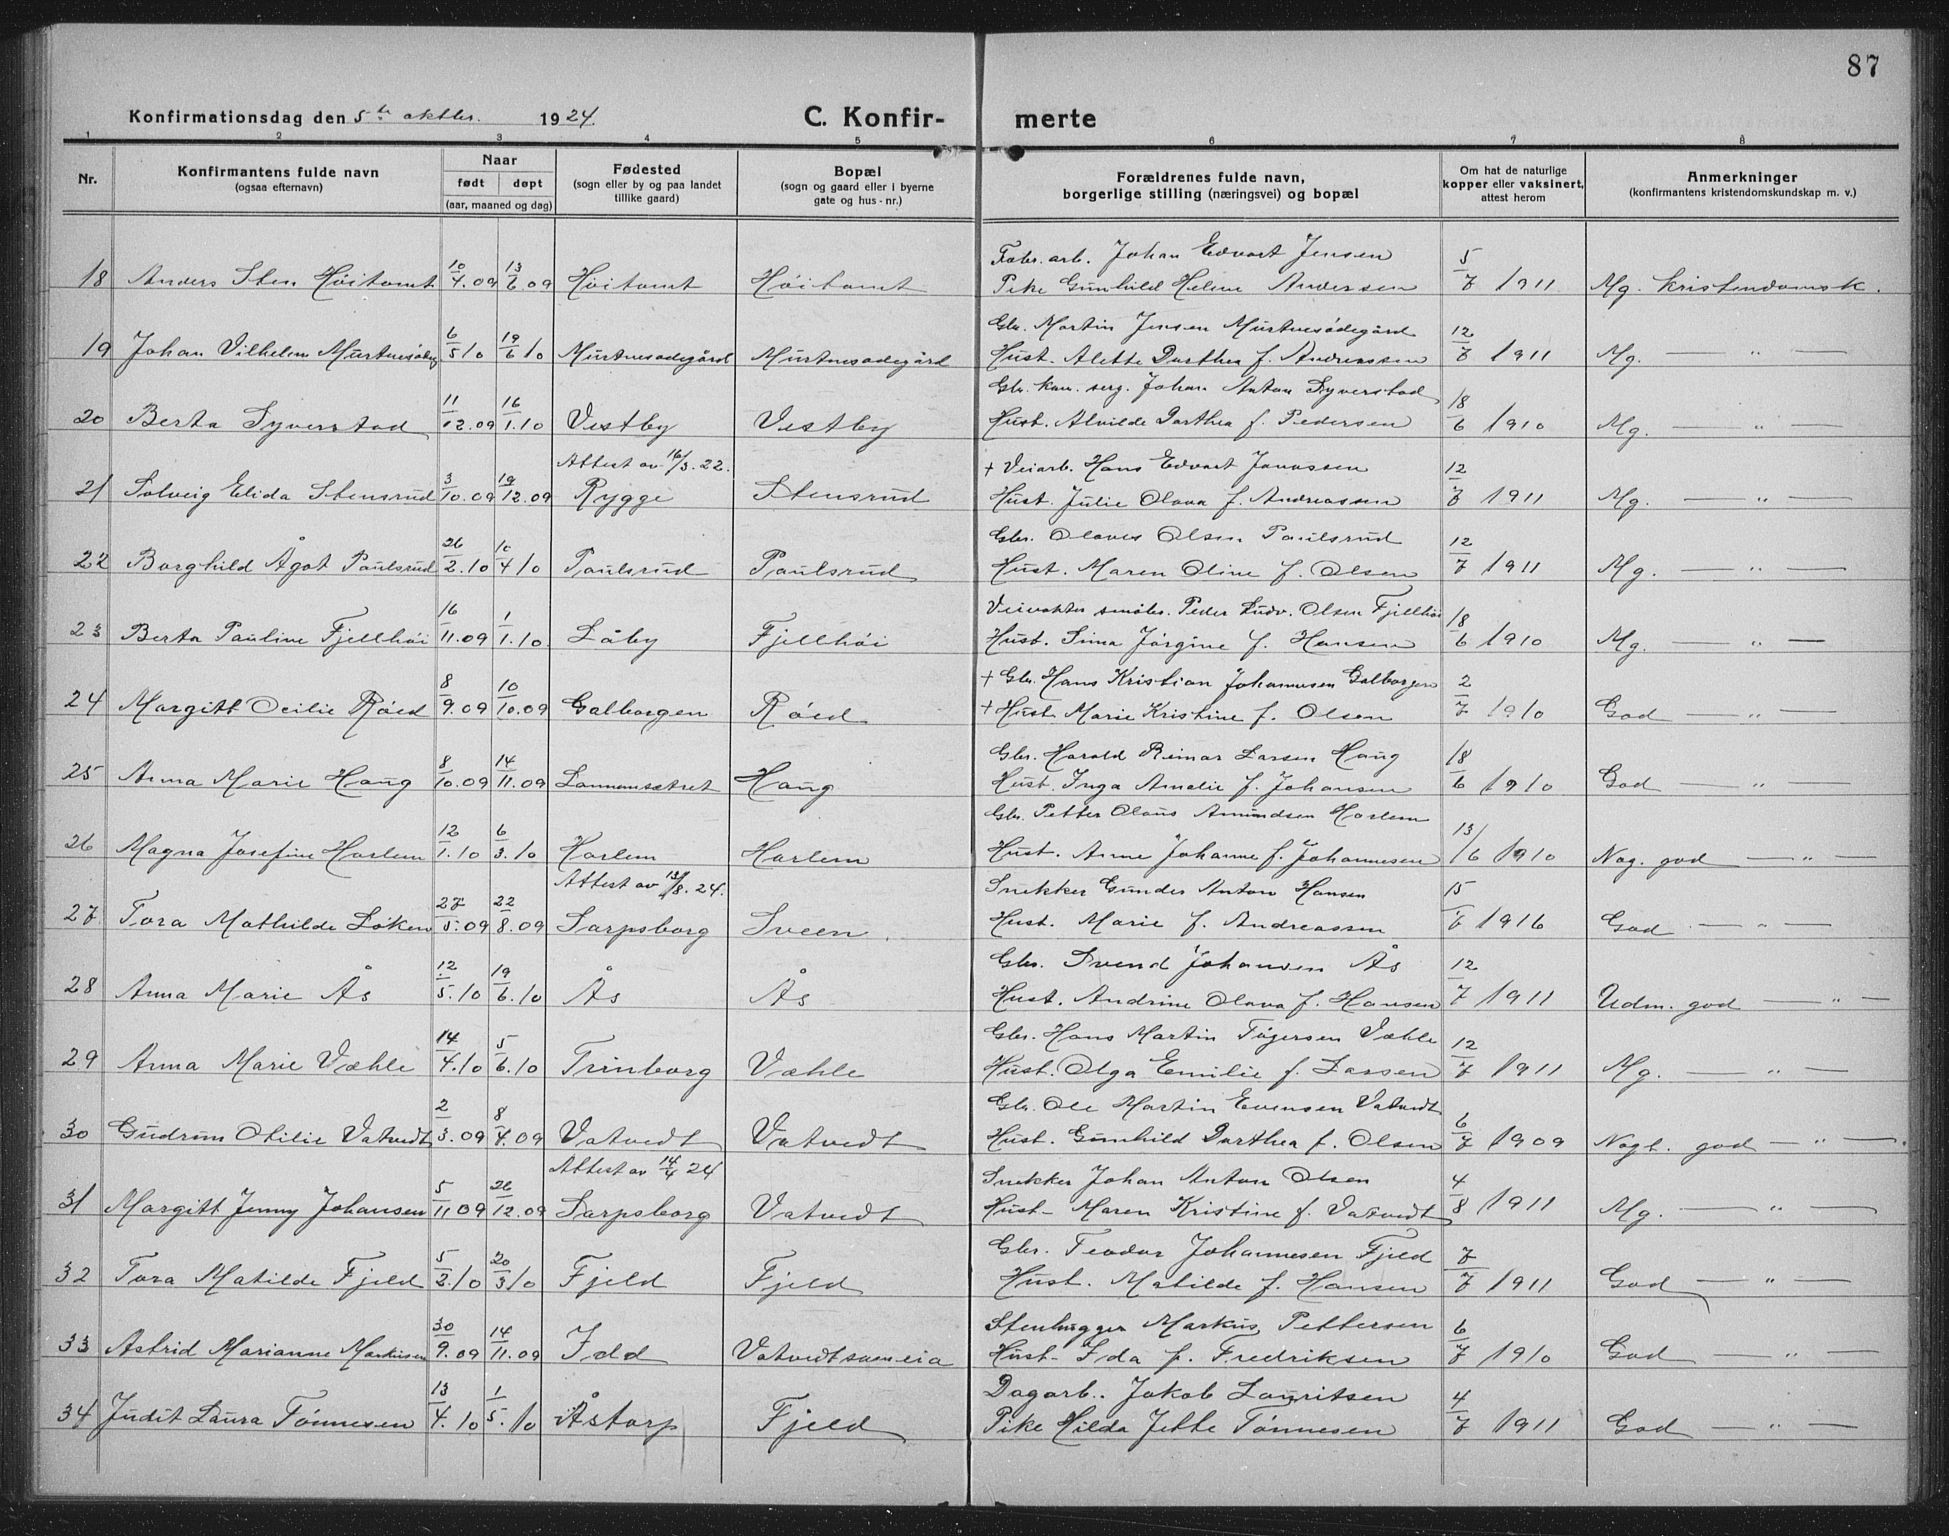 87
Konfirmationsdag den 5te oktbr. 1924. C. Konfir- merte
1 2 3 4 5 6 7 8
Nr. Konfirmantens fulde navn (ogsaa efternavn) Naar født døpt (aar, maaned og dag) Fødested (sogn eller by og paa landet tillike gaard) Bopæl (sogn og gaard eller i byerne gate og hus-nr.) Forældrenes fulde navn, borgerlige stilling (næringsvei) og bopæl Om hat de naturlige kopper eller vaksinert, attest herom Anmerkninger (konfirmantens kristendomskundskap m. v.)
Fabr. arb. Johan Edvart Jensen
18 Anders Sten Höitomt 10/4.09 13/6.09 Höitomt Höitomt Pike Gunhild Helene Andersen 5/7 1911 Mg. kristendomsk.
Gbr. Martin Jensen Murtnesödegård
19 Johan Vilhelm Murtnesödeg 6/5 10 19/6 10 Murtnesödegård Murtnesödegård Hust. Alette Dorthea f. Andreassen 12/7 1911 Mg. — " —
Gbr. kan. serg. Johan Anton Syverstad
20 Berta Syverstad 11/12.09 16/1.10 Vestby Vestby Hust. Alvilde Dorthea f. Pedersen 18/6 1910 Mg. — " —
Attest av 16/3.22. + Veiarb. Hans Edvart Jonassen
21 Solveig Elida Stensrud 3/10.09 19/12.09 Rygge Stensrud Hust. Julie Olava f. Andreassen 12/7 1911 Mg. — " —
Gbr. Olaves Olsen Paulsrud
22 Borghild Ågot Paulsrud 26/2.10 10/4 10 Paulsrud Paulsrud Hust. Maren Oline f. Olsen 12/7 1911 Mg. — " —
Veivokter småbr. Peder Ludv. Olsen Fjellhöi
23 Berta Pauline Fjellhöi 16/11.09 1/1.10. Låby Fjellhöi Hust. Sina Jörgine f. Hansen 18/6 1910 Mg. — " —
+ Gbr. Hans Kristian Johannesen Galborgen
24 Margitt Ocilie Röed 8/9.09 10/10.09 Galborgen Röed + Hust Marie Kristine f. Olsen 2/7 1910 God — " —
Gbr. Harald Reinar Larsen Haug
25 Anna Marie Haug 8/10.09 14/11.09 Lannemsætret Haug Hust. Inga Amalie f. Johansen 18/6 1910 God — "
Gbr. Petter Olaus Amundsen Harlem
26 Magna Josefine Harlem 12/1.10 6/3.10 Harlem Harlem Hust. Anne Johanne f. Johannesen 13/6 1910 Nog. god — " —
Attest av 13/8.24. Snekker Gunder Anton Hansen
27 Tora Mathilde Löken 27/5.09 22/8.09 Sarpsborg Sveen. Hust. Marie f. Andreassen 15/6 1916 God. — " —
Gbr. Svend Johansen Ås
28 Anna Marie Ås 12/5.10 19/6.10 Ås Ås Hust. Andrine Olava f. Hansen 12/7 1911 Udm. god — " —
Gbr. Hans Martin Tögersen Væhle
29 Anna Marie Væhle 14/4.10 5/6.10 Trinborg Væhle Hust. Olga Emilie f. Larsen 12/7 1911 Mg. — " —
Gbr. Ole Martin Evensen Vatvedt
30 Gudrun Otilie Vatvedt 2/3.09 8/4.09 Vatvedt Vatvedt Hust. Gunhild Dorthea f. Olsen 6/7 1909 Nogl. god — " —
Attest av 14/4 24 Snekker Johan Anton Olsen
31 Margitt Jenny Johansen 5/11 09 26/12.09 Sarpsborg Vatvedt Hust. Maren Kristine f. Vatvedt 4/8 1911 Mg. — " —
Gbr. Teodor Johannesen Fjeld
32 Tora Matilde Fjeld 5/2.10 20/3 10 Fjeld Fjeld Hust. Matilde f. Hansen 7/7 1911 God — " —
Stenhugger Markus Pettersen
33 Astrid Marianne Markusen 30/9.09 14/11.09 Idd Vatvedtsveneia Hust. Ida f. Fredriksen 6/7 1910 God — " —
Dagarb. Jakob Lauritsen
34 Judit Laura Tönnesen 13/4.10 1/5.10 Åstorp Fjeld Pike Hilda Jette Tönnesen 4/7 1911 God — " —